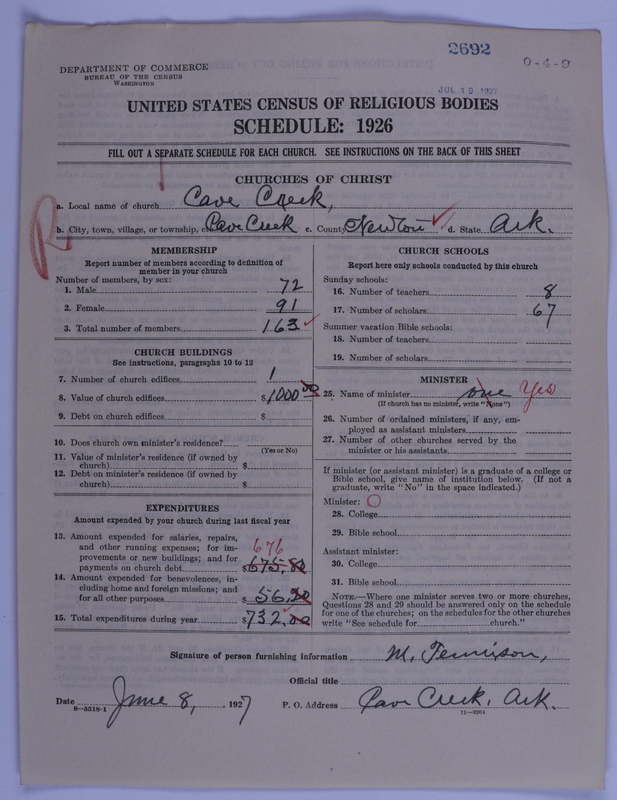 2692
0-4-9
DEPARTMENT OF COMMERCE
BUREAU OF THE CENSUS
WASHINGTON
JUL 19 1927
UNITED STATES CENSUS OF RELIGIOUS BODIES
SCHEDULE: 1926
FILL OUT A SEPARATE SCHEDULE FOR EACH CHURCH. SEE INSTRUCTIONS ON THE BACK OF THIS SHEET
CHURCHES OF CHRIST
a. Local name of church Cave Creek,
b. City, town, village, or township, etc. Cave Creek c. County Newton d. State Ark.
R
MEMBERSHIP
Report number of members according to definition of
member in your church
Number of members, by sex:
1. Male 72
2. Female 91
3. Total number of members 163
CHURCH BUILDINGS
See instructions, paragraphs 10 to 12
7. Number of church edifices 1
8. Value of church edifices $1000 00
9. Debt on church edifices $
10. Does church own minister's residence?
(Yes or No)
11. Value of minister's residence (if owned by
church) $
12. Debt on minister's residence (if owned by
church) $
EXPENDITURES
Amount expended by your church during last fiscal year
13. Amount expended for salaries, repairs,
and other running expenses; for im-
provements or new buildings; and for
payments on church debt 676 $675.80
14. Amount expended for benevolences, in-
cluding home and foreign missions; and
for all other purposes $56.20
15. Total expenditures during year $732.00
CHURCH SCHOOLS
Report here only schools conducted by this church
Sunday schools:
16. Number of teachers 8
17. Number of scholars 67
Summer vacation Bible schools:
18. Number of teachers
19. Number of scholars
MINISTER
25. Name of minister one Yes
(If church has no minister, write "None")
26. Number of ordained ministers, if any, em-
ployed as assistant ministers
27. Number of other churches served by the
minister or his assistants
If minister (or assistant minister) is a graduate of a college or
Bible school, give name of institution below. (If not a
graduate, write "No" in the space indicated.)
Minister:
28. College
29. Bible school
Assistant minister:
30. College
31. Bible school
NOTE.—Where one minister serves two or more churches,
Questions 28 and 29 should be answered only on the schedule
for one of the churches; on the schedules for the other churches
write "See schedule for church."
Signature of person furnishing information M. Tennison,
Official title
Date June 8, 1927 P. O. Address Cave Creek, Ark.
8—5518-1
11—9204